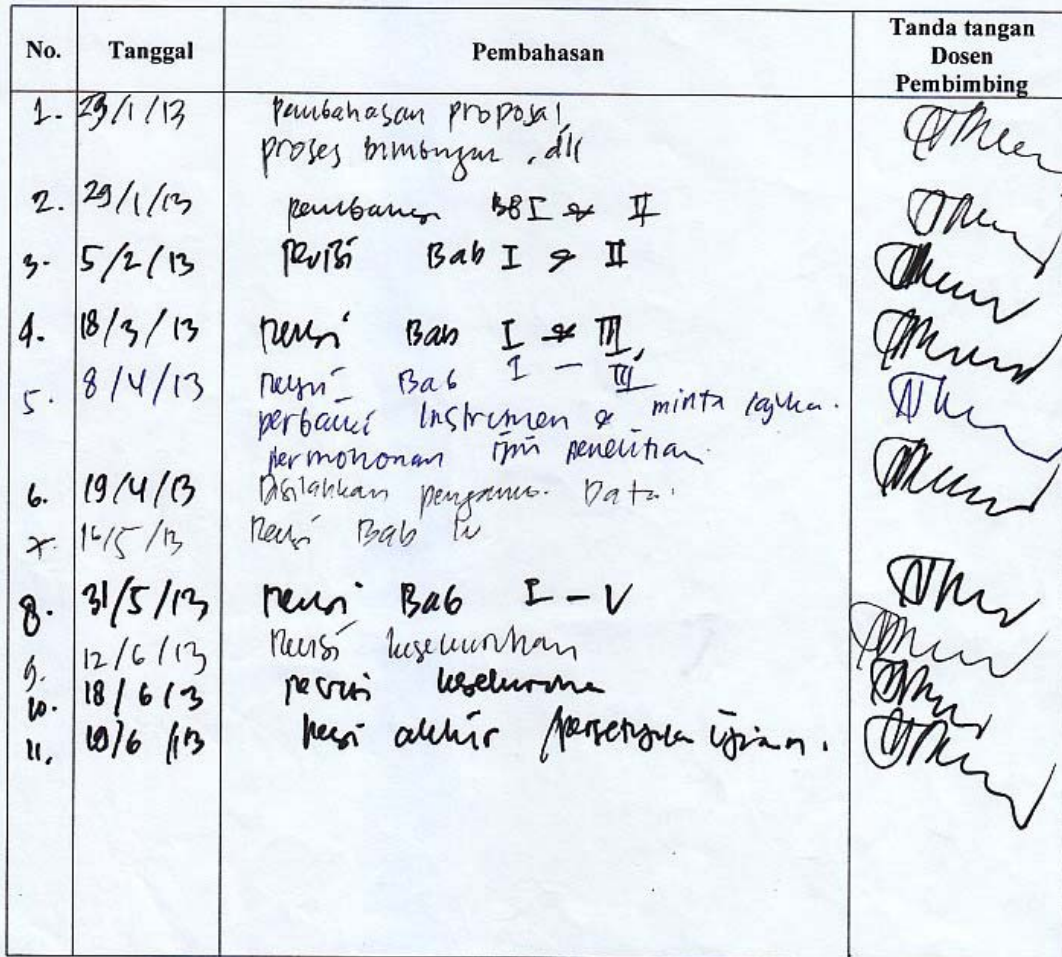 No. Tanggal Pembahasan Tanda tangan Dosen Pembimbing
1. 29/1/13 pembahasan proposal,
proses bimbingan, dll
2. 29/1/13 I & II
3. 5/2/13 Revisi Bab I & II
4. 18/3/13 revisi Bab I & III
5. 8/4/13 revisi Bab I - III,
perbaiki Instrumen & minta
permohonan ijin penelitian.
6. 19/4/13 Disilahkan Data.
7. 16/5/13 Revisi Bab IV
8. 31/5/13 revisi Bab I - V
9. 12/6/13 Revisi keseluruhan
10. 18/6/13 revisi keseluruhan
11. 19/6/13 akhir